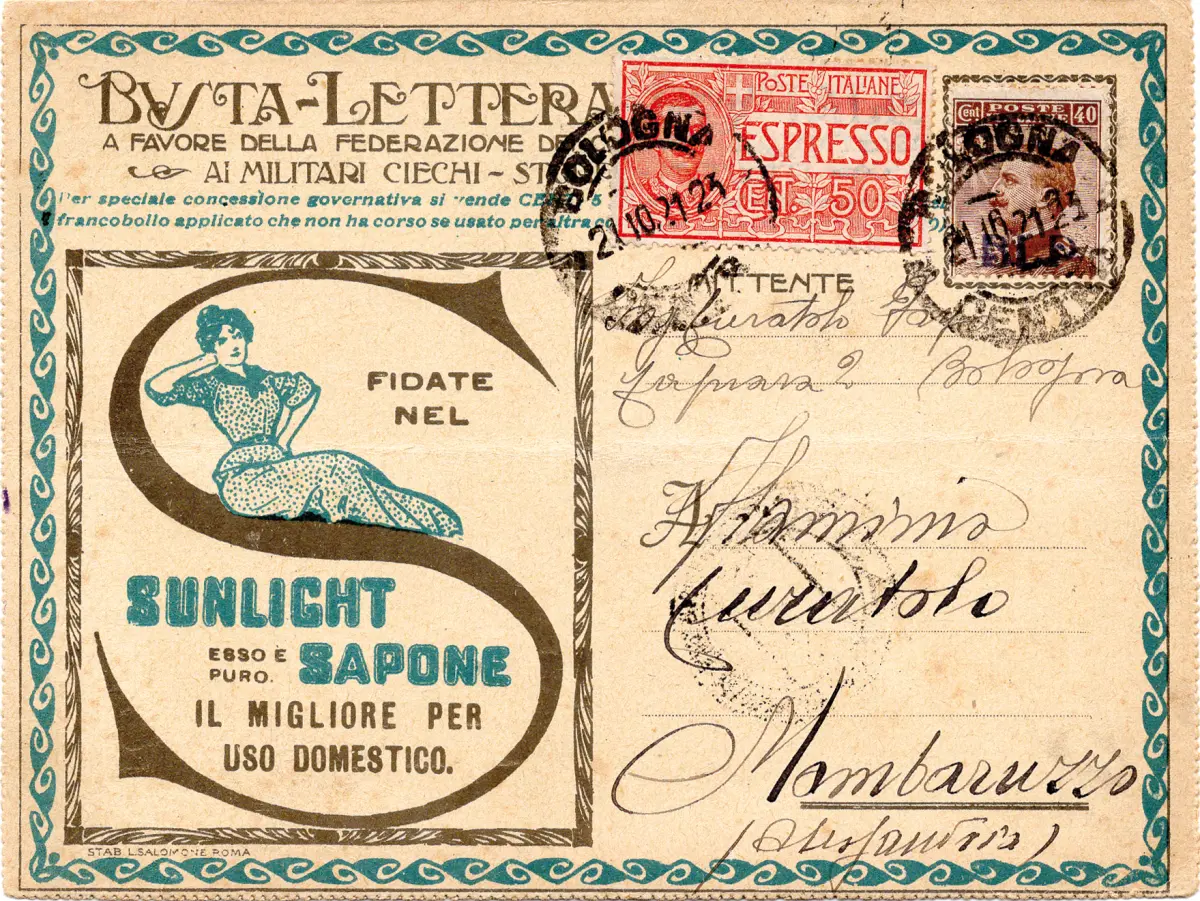 BVSTA-LETTERA
A FAVORE DELLA FEDERAZIONE DE
AI MILITARI CIECHI - ST
Per speciale concessione governativa si vende CE 5
francobollo applicato che non ha corso se usato per altra
POSTE ITALIANE
ESPRESSO
CET. 50
BOLOGNA
21.10.21.23
Cent POSTE 40
B.L.P.
BOLOGNA
MITTENTE
Curatolo
2 Bologna
FIDATE
NEL
SUNLIGHT
ESSO È
PURO.
SAPONE
IL MIGLIORE PER
USO DOMESTICO.
Flaminio
Curatolo
Mombaruzzo
(Alessandria)
STAB. L. SALOMONE ROMA